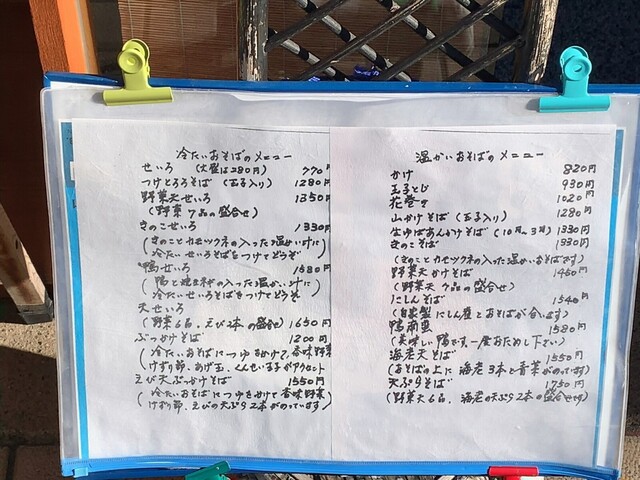 冷たいおそばのメニュー
せいろ (大盛は280円) 770円
つけとろろそば (玉子入り) 1280円
野菜天せいろ 1350円
(野菜 7品の盛合せ)
きのこせいろ 1330円
(きのことカモツクネの入った温かい汁に)
冷たいせいろそばをつけてどうぞ
鴨せいろ 1580円
(鴨と焼ネギの入った温かい汁に)
冷たいせいろそばをつけてどうぞ
天せいろ
(野菜6品、えび2本の盛合せ) 1650円
ぶっかけそば 1200円
(冷たいおそばにつゆをかけて、香味野菜
けずり節、あげ玉、くんせい玉子がアクセント
えび天ぶっかけそば 1550円
(冷たいおそばにつゆをかけて香味野菜)
けずり節、えびの天ぷら2本がのっています
温かいおそばのメニュー
かけ 820円
玉子とじ 930円
花巻き 1020円
山かけそば (玉子入り) 1280円
生ゆばあんかけそば (10月〜3月) 1330円
きのこそば 1330円
(きのことカモツクネの入った温かいおそばです)
野菜天かけそば 1450円
(野菜天7品の盛合せ)
にしんそば 1540円
(自家製にしん煮とおそばが合います)
鴨南蛮 1580円
(美味しい鴨です一度おためし下さい)
海老天そば 1550円
(おそばの上に海老3本と青菜がのっています)
天ぷらそば 1750円
(野菜天6品、海老の天ぷら2本の盛合せです)